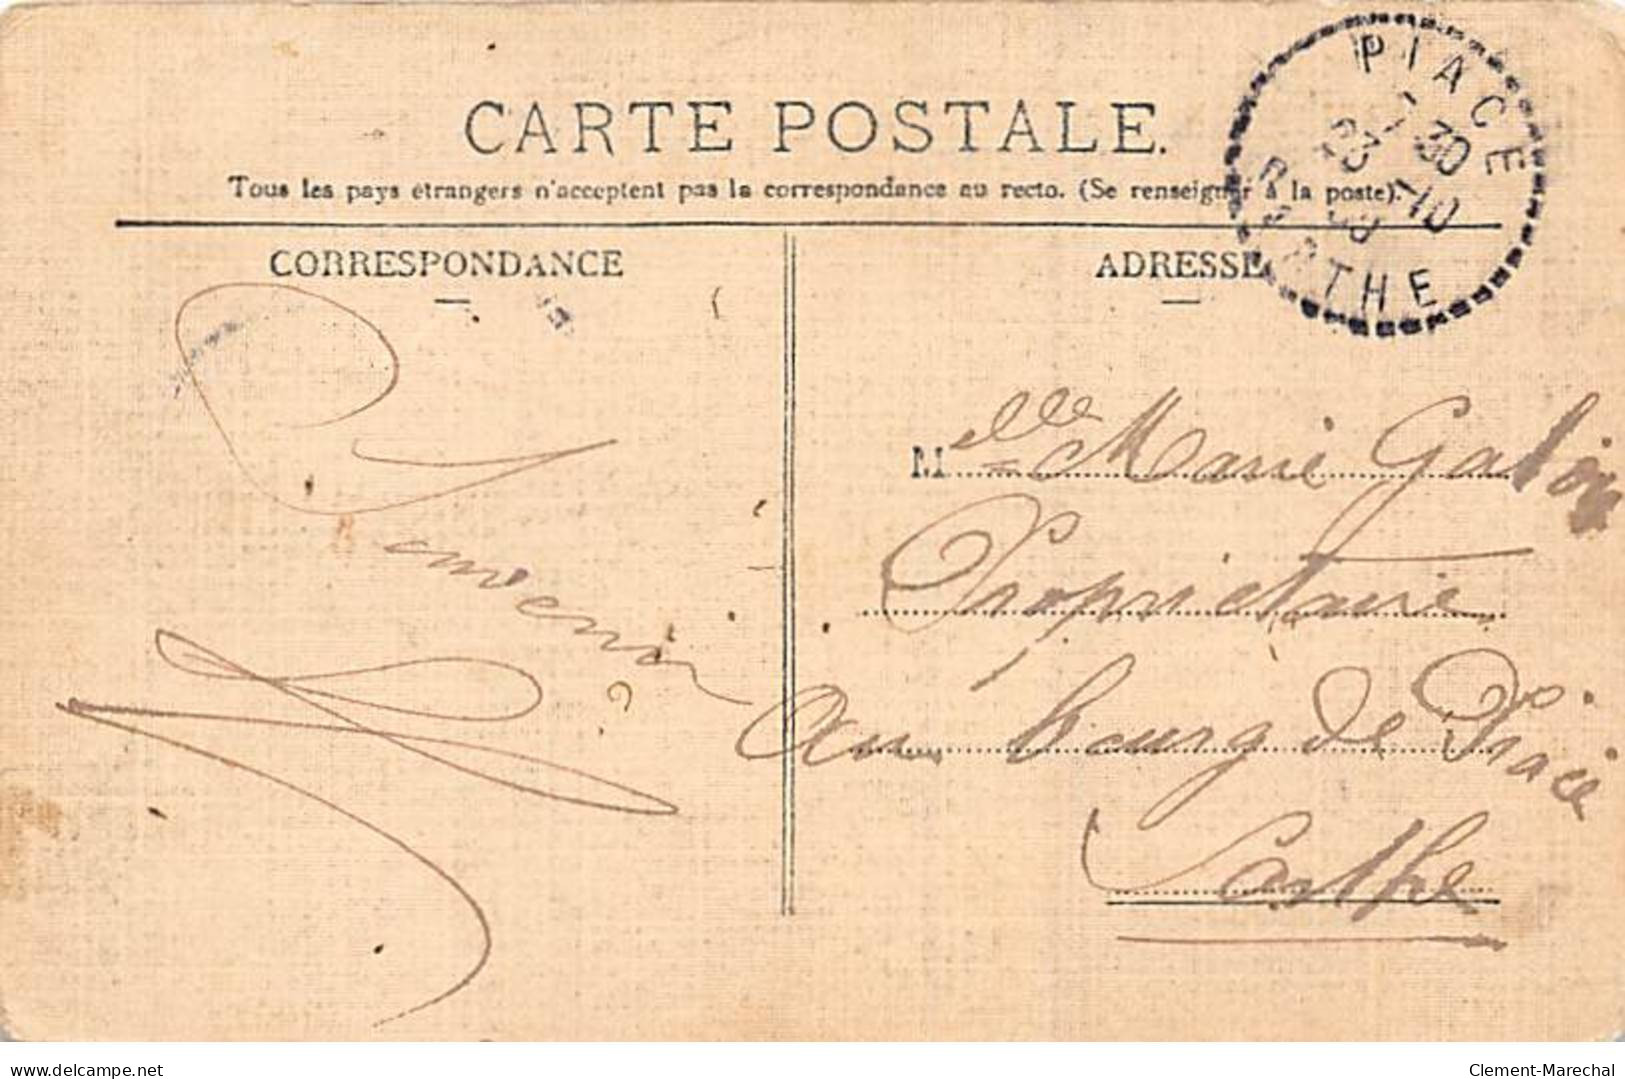 CARTE POSTALE.
Tous les pays étrangers n'acceptent pas la correspondance au recto. (Se renseigner à la poste).
PIACE
30
23 -10
SARTHE
CORRESPONDANCE
ADRESSE
Souvenir
Melle Marie
Propriétaire
Au bourg de Piacé
Sarthe
delcampe.net
Clement-Marechal